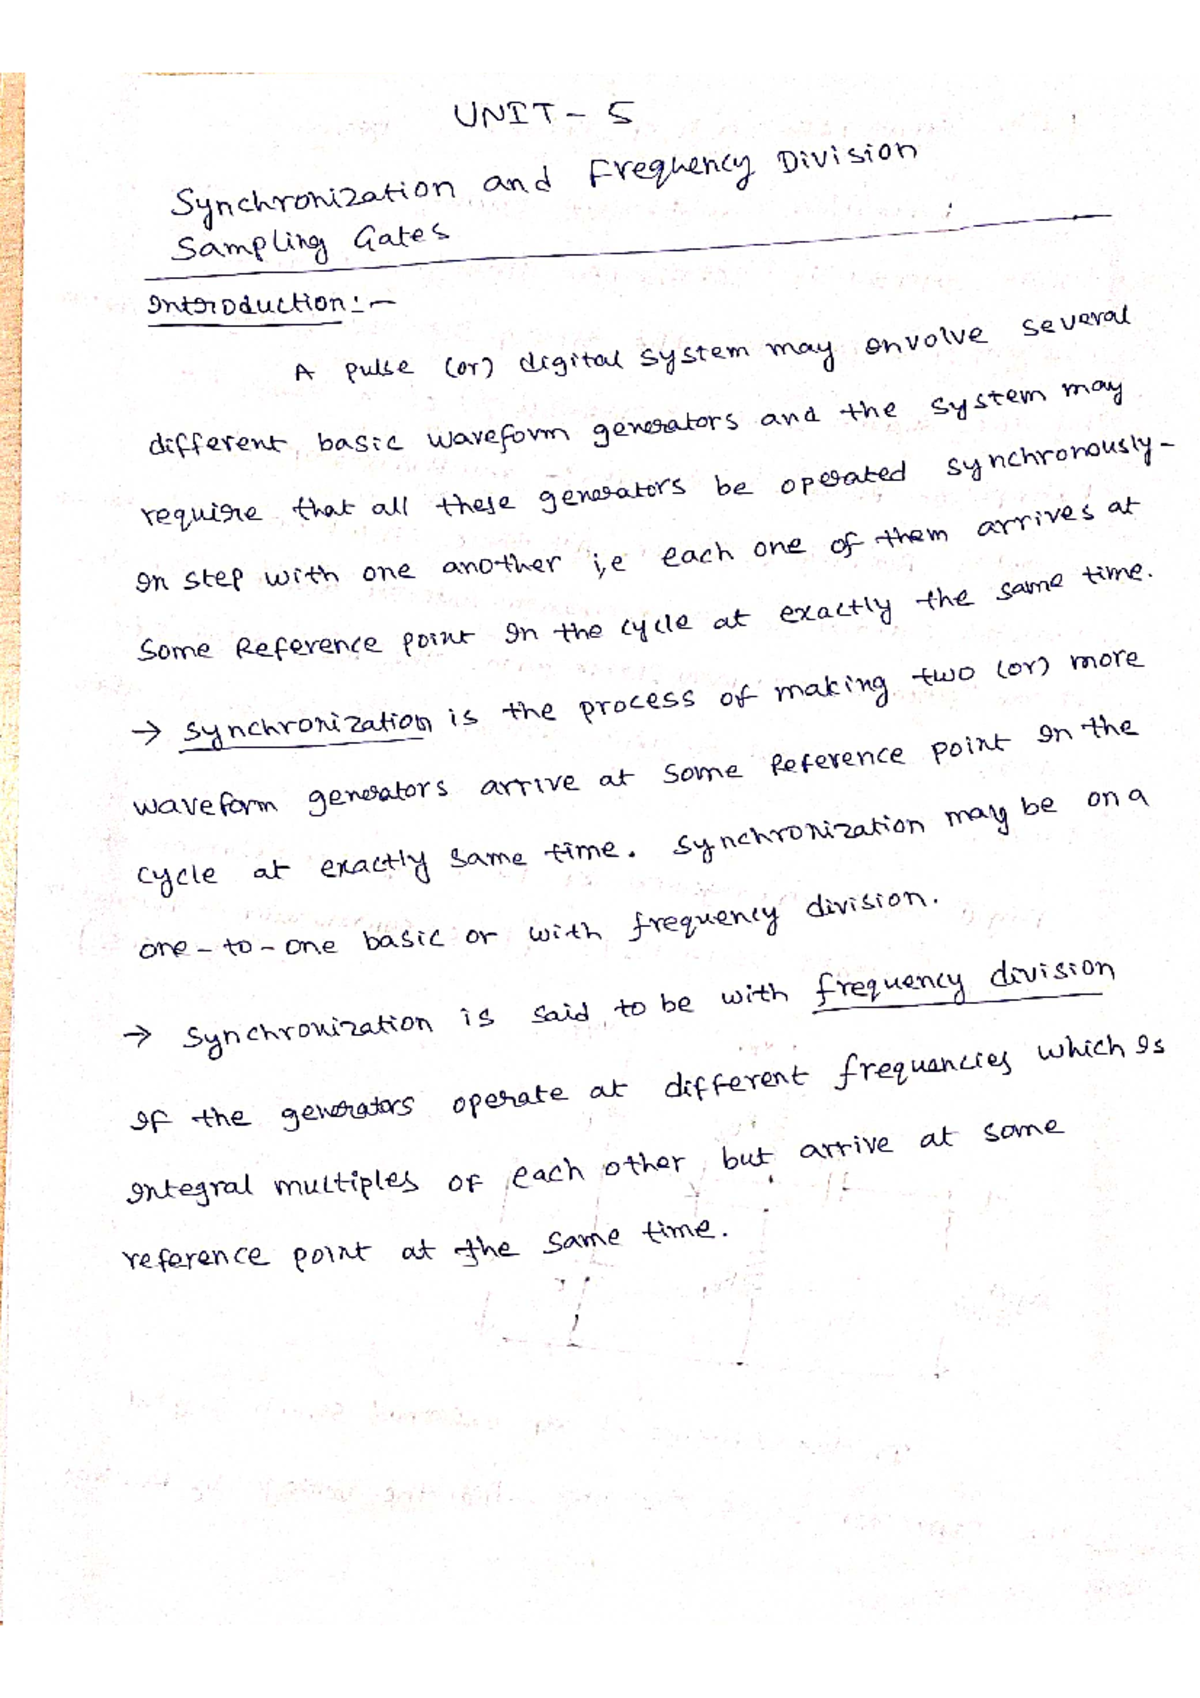 UNIT - 5
Synchronization and Frequency Division
Sampling Gates
Introduction:-
A pulse (or) digital system may involve several
different basic waveform generators and the system may
require that all these generators be operated synchronously-
In step with one another i,e each one of them arrives at
Some Reference point In the cycle at exactly the same time.
→ synchronization is the process of making two (or) more
waveform generators arrive at some Reference point In the
cycle at exactly same time. Synchronization may be on a
one-to-one basic or with frequency division.
→ Synchronization is said to be with frequency division
If the generators operate at different frequancies which Is
Integral multiples of each other but arrive at some
reference point at the same time.